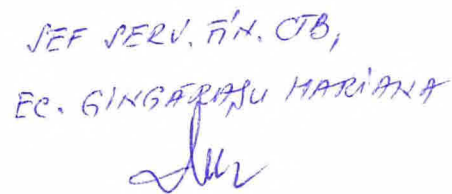 ȘEF SERV. FIN. CTB,
EC. GINGĂRAȘU MARIANA